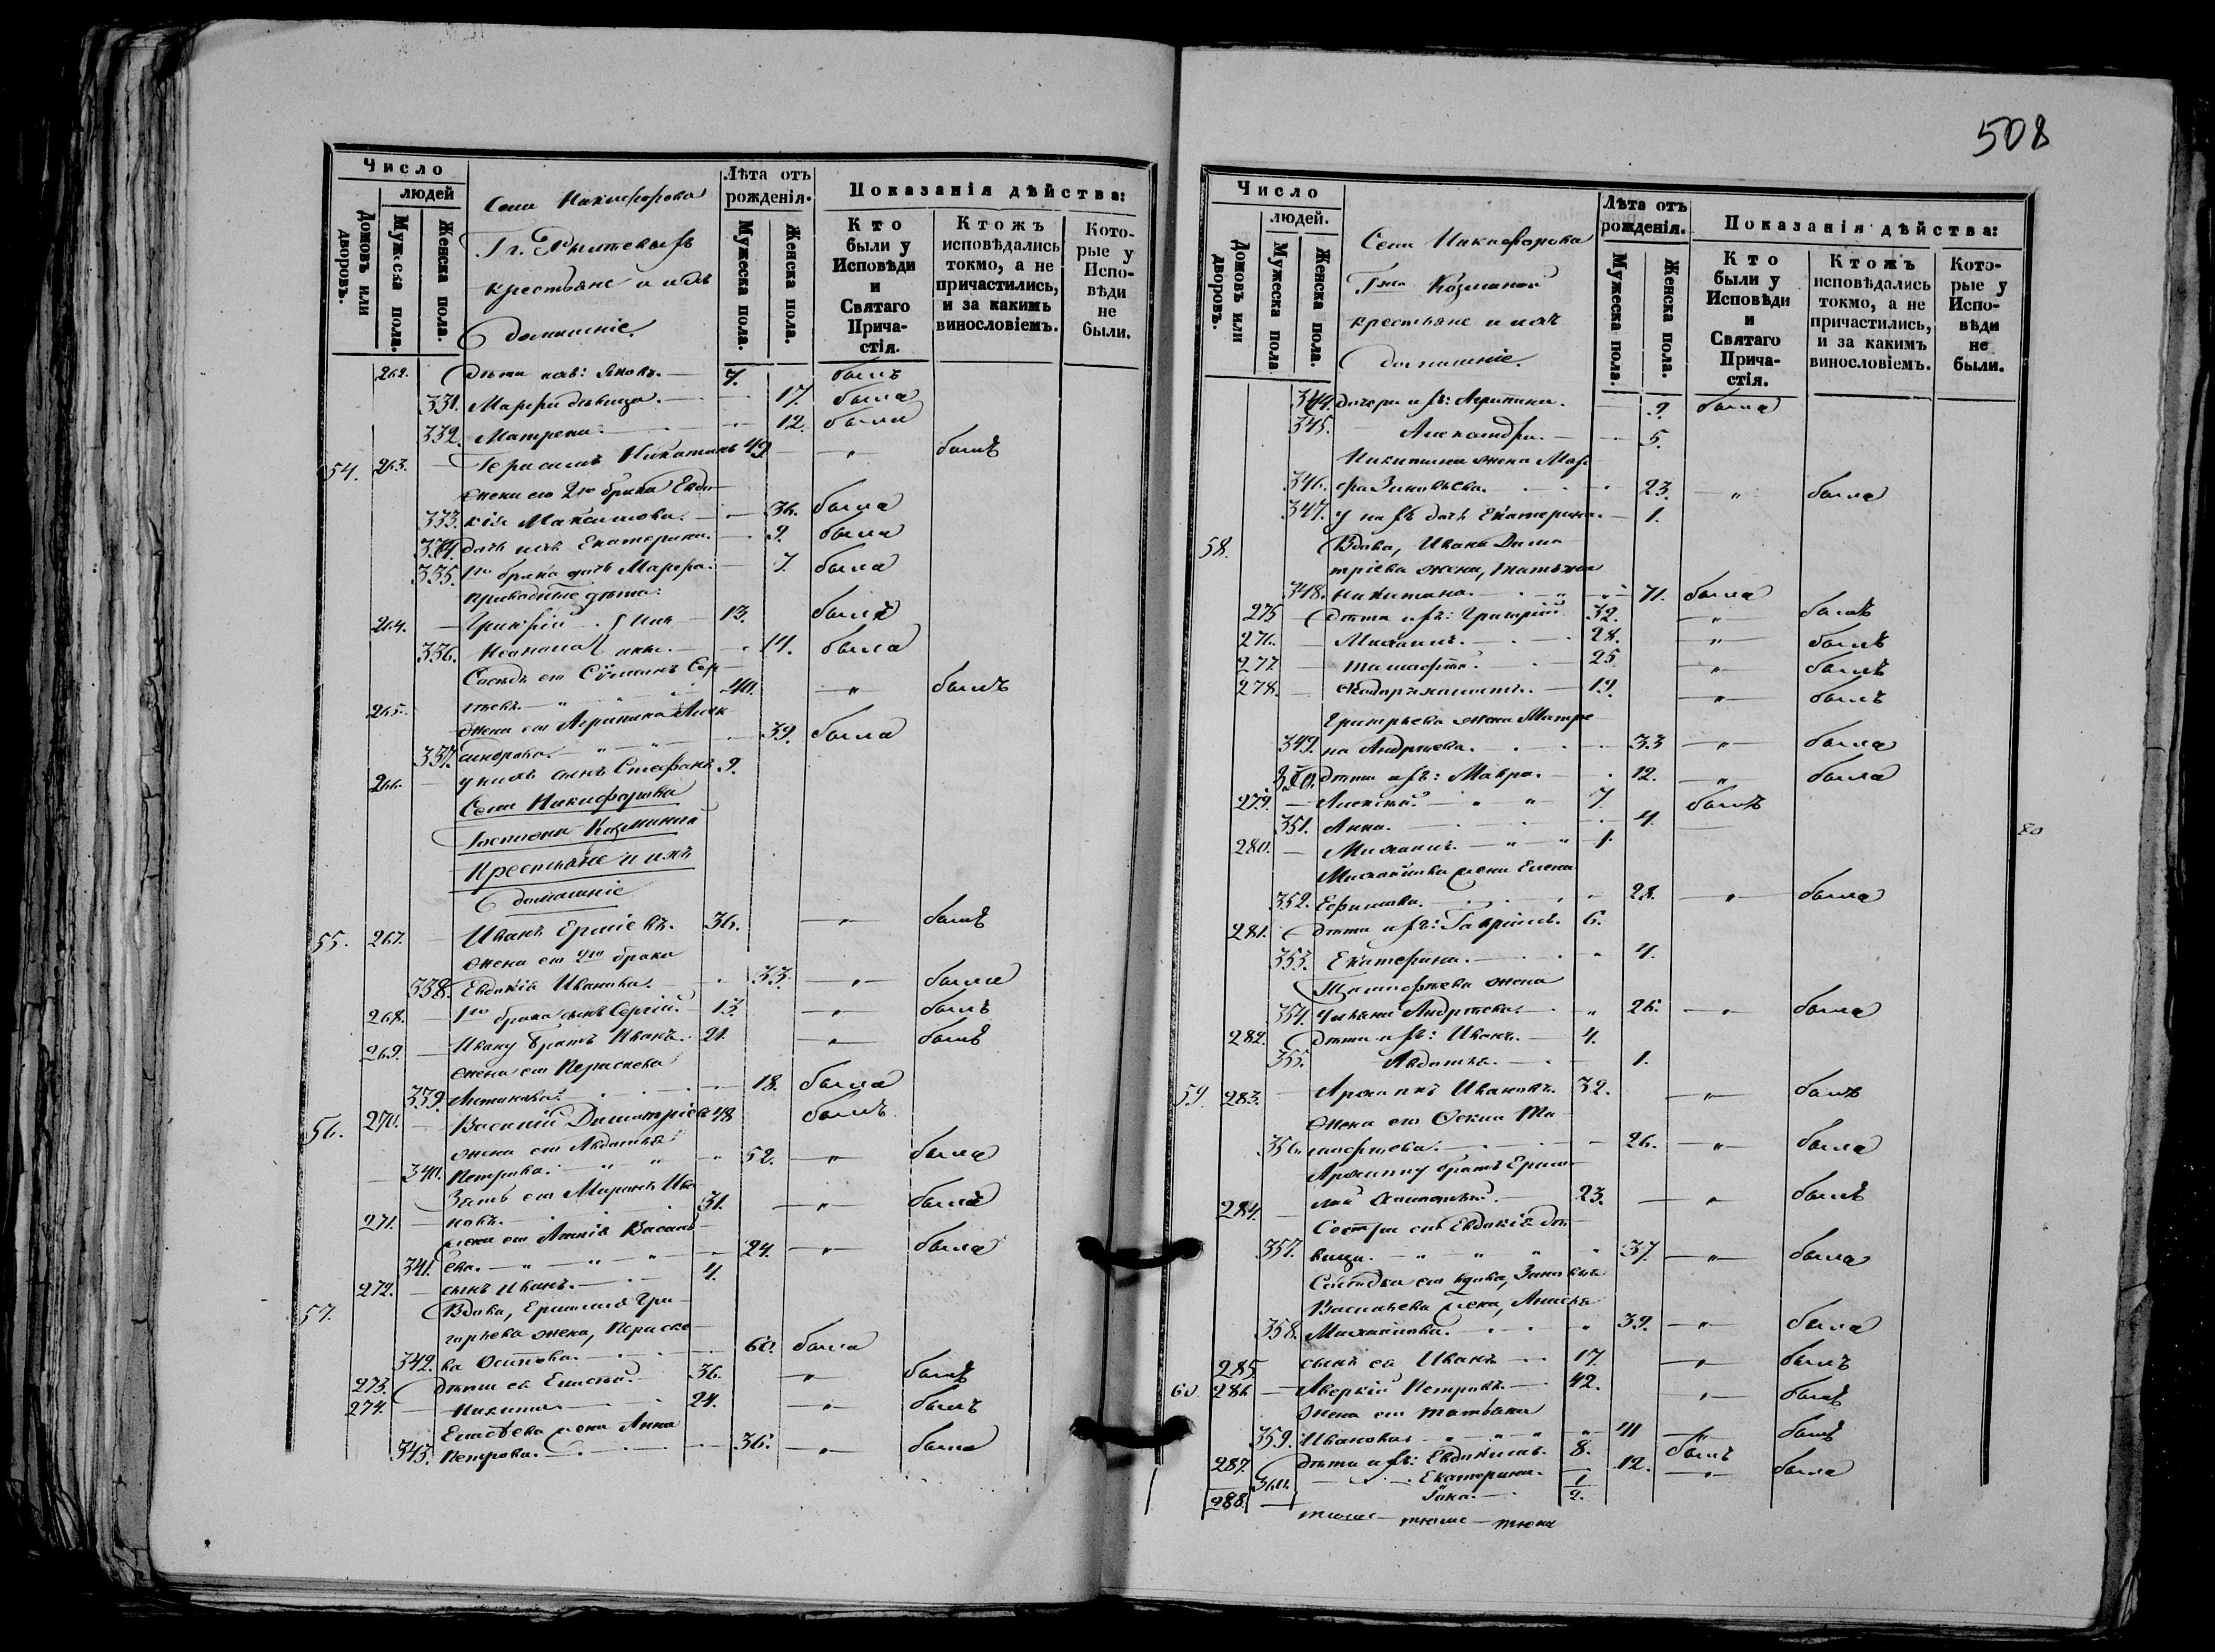 508
Число
людей
Домовъ или дворовъ.
Мужеска пола.
Женска пола.
Села Никифорова
Гг.
крестьяне и ихъ
домашніе.
Лѣта отъ рожденія.
Мужеска пола.
Женска пола.
Показанія дѣйства:
Кто были у Исповѣди и Святаго Прича-стія.
Ктожъ исповѣдались токмо, а не причастились, и за какимъ винословіемъ.
Кото-рые у Испо-вѣди не были.
262. дѣти ихъ: 7. былъ
331. Марфа дѣвица. 17. была
332. Матрена. 12. была
54. 263. Герасимъ Никитинъ 49 " былъ
жена его 2го брака Евдо-
333. кія Максимова. 36. была
334. дочь ихъ Екатерина. 9. была
335. 1го брака дочь Марфа. 7. была
приводные дѣти:
264. 13. былъ
336. 14. была
Сосѣдъ его Сер-
265. гѣевъ. 40. " былъ
жена его Агрипина Алек
337. сандрова. 39. была
266. у нихъ сынъ Стефанъ 9.
Села Никифорова
Госпожи Козминой
Крестьяне и ихъ
домашніе
55. 267. Иванъ 36. " былъ
жена его 2го брака
338. Евдокія Иванова. 33. " была
268. 1го брака сынъ Сергій. 13. " былъ
269. Ивану братъ Иванъ. 21. " былъ
жена его
339. 18. была
56. 270. Василій Димитріевъ 48 былъ
жена его Авдотья
340. Петрова. 52. " была
Зять его Миронъ Ива
271. новъ. 31. " былъ
жена его Василь-
341. ева. 24. " была
272. сынъ Иванъ. 4.
57. Вдова, Гри-
горьева жена, Параске-
342. ва Осипова. 60. была
273. дѣти ея Елисѣй. 36. " былъ
274. Никита. 24. " былъ
Елисѣева жена Анна
343. Петрова. 36. " была
Число
людей.
Домовъ или дворовъ.
Мужеска пола
Женска пола.
Села Никифорова
Гжи Козминой
крестьяне и ихъ
домашніе.
Лѣта отъ рожденія.
Мужеска пола.
Женска пола.
Показанія дѣйства:
Кто были у Исповѣди и Святаго Прича-стія.
Ктожъ исповѣдались токмо, а не причастились, и за какимъ винословіемъ.
Кото-рые у Испо-вѣди не были.
344. дочери ихъ: Агрипина. 9. была
345. Александра. 5.
Никитина жена Мар-
346. фа Зиновьева. 23. " была
347. у нихъ дочь Екатерина. 1.
58. Вдова, Ивана Дими
тріева жена, Татьяна
348. Никитина. 71. была
275 дѣти ихъ: Григорій 32. " былъ
276. Михаилъ. 28. " былъ
277. Тимофей. 25. " былъ
278. 19. " былъ
Григорьева жена Матре
349. на Андреева. 33 " была
350. дѣти ихъ: Мавра. 12. " была
279. Алексѣй. 7. былъ
351. Анна. 4.
280. Михаилъ. 1.
Михайлова жена Елена
352. Ефимова. 28. " была
281. дѣти ихъ: Гавріилъ. 6.
353. Екатерина. 4.
Тимофеева жена
354. Ульяна Андреева. 26. " была
282. дѣти ихъ: Иванъ. 4.
355. Авдотья. 1.
59. 283. Архипъ Ивановъ. 32. " былъ
жена его Ти
356. мофеева. 26. " была
Архипу братъ Ермо-
284. лай 23. " былъ
Сестра его Евдокія дѣ-
357. вица. 37. " была
Сосѣдка его вдова,
Васильева жена, Анисья
358. Михайлова. 39. " была
285 сынъ ея Иванъ 17. " былъ
60 286 Аверкій Петровъ. 42. " былъ
жена его Татьяна
359. Иванова. 41 " былъ
287. дѣти ихъ: Евдокимъ. 8. былъ
360. Екатерина. 12. " была
288. 1/2.